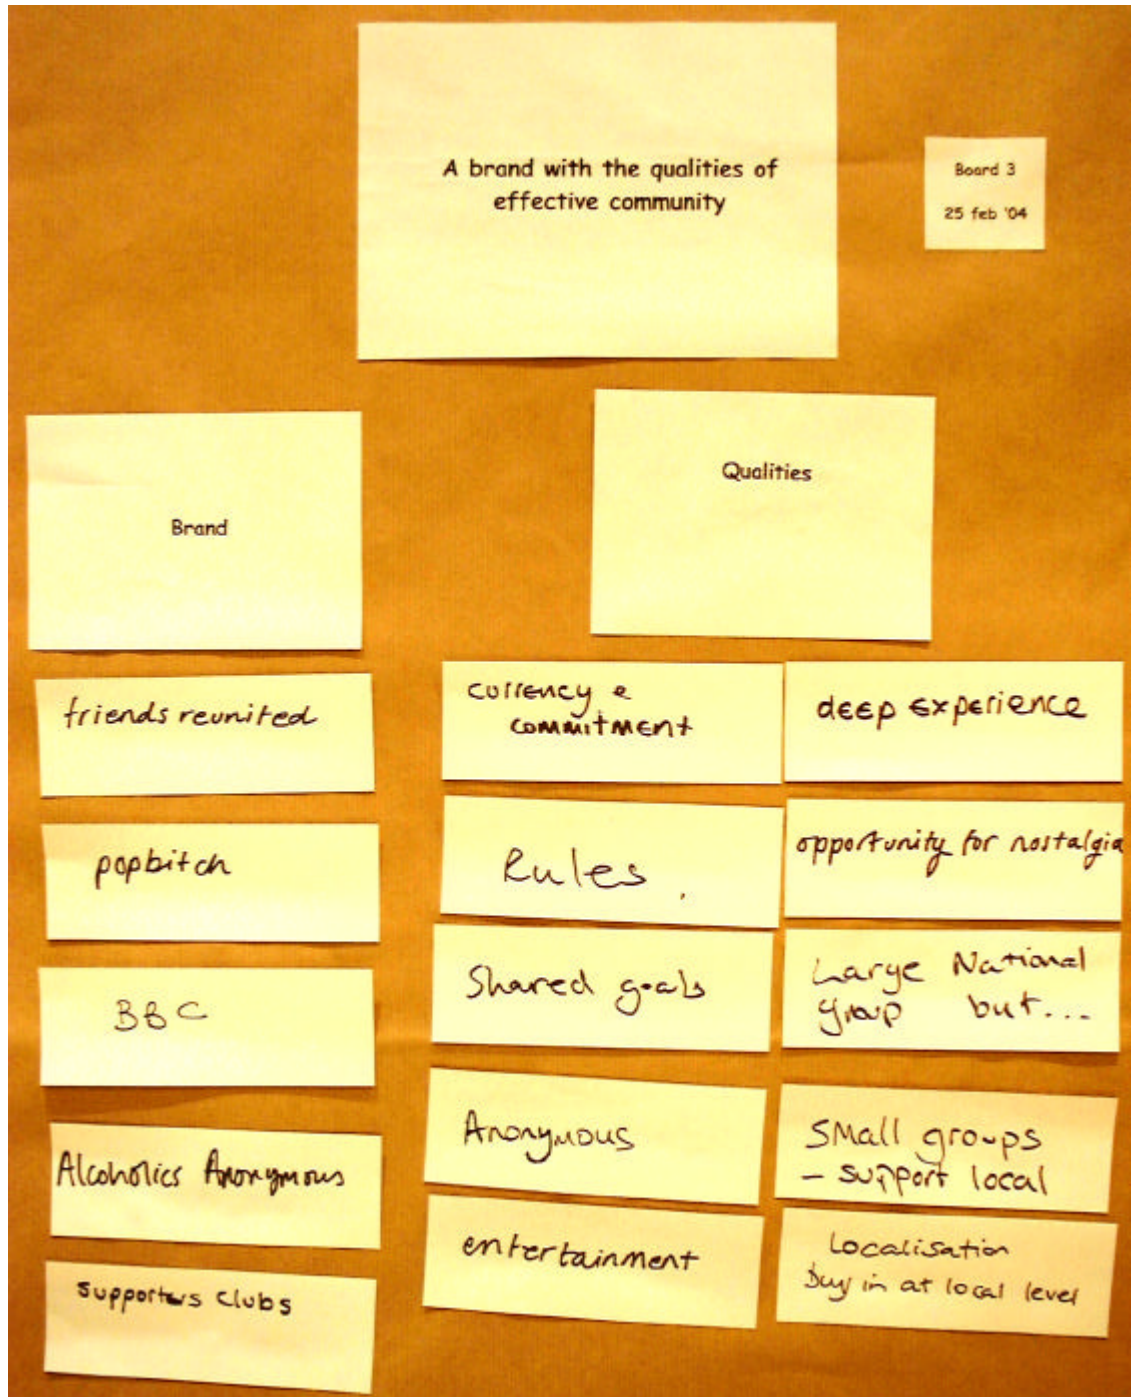 A brand with the qualities of
effective community
Board 3
25 feb '04
Brand
Qualities
friends reunited
popbitch
BBC
Alcoholics Anonymous
supporters clubs
currency &
commitment
Rules.
Shared goals
Anonymous
entertainment
deep experience
opportunity for nostalgia
Large National
group but...
Small groups
- support local
Localisation
Buy in at local level